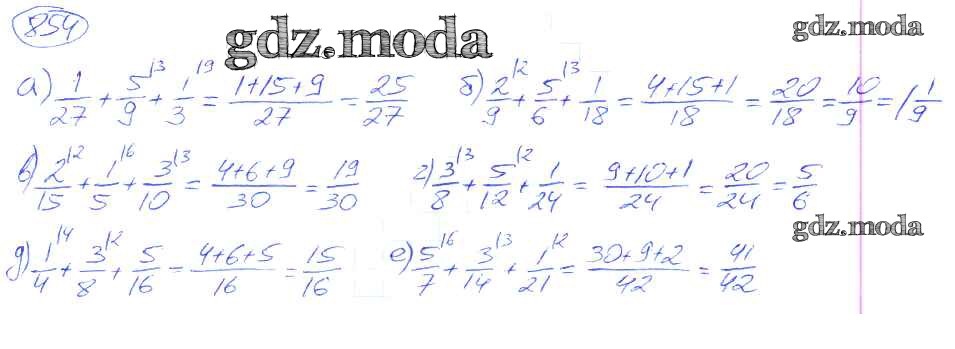 854
gdz.moda
gdz.moda
а) 1/27 + 5/9 \3 + 1/3 \9 = (1+15+9)/27 = 25/27 б) 2/9 \2 + 5/6 \3 + 1/18 = (4+15+1)/18 = 20/18 = 10/9 = 1 1/9
в) 2/15 \2 + 1/5 \6 + 3/10 \3 = (4+6+9)/30 = 19/30 г) 3/8 \3 + 5/12 \2 + 1/24 = (9+10+1)/24 = 20/24 = 5/6
gdz.moda
д) 1/4 \4 + 3/8 \2 + 5/16 = (4+6+5)/16 = 15/16 е) 5/7 \6 + 3/14 \3 + 1/21 \2 = (30+9+2)/42 = 41/42